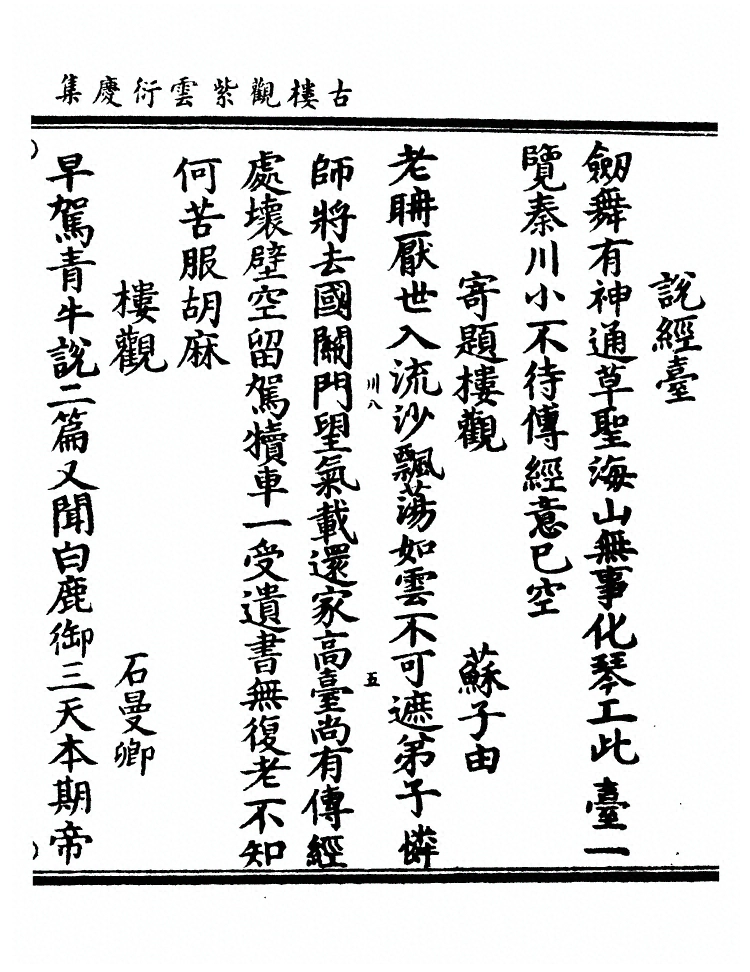 古樓觀紫雲衍慶集
說經臺
劒舞有神通草聖海山無事化琴工此臺一
覽秦川小不待傳經意已空
寄題樓觀 蘇子由
老聃厭世入流沙飄蕩如雲不可遮弟子憐
川八 五
師將去國關門望氣載還家高臺尚有傳經
處壞壁空留駕犢車一受遺書無復老不知
何苦服胡麻
樓觀 石曼卿
早駕青牛說二篇又聞白鹿御三天本期帝